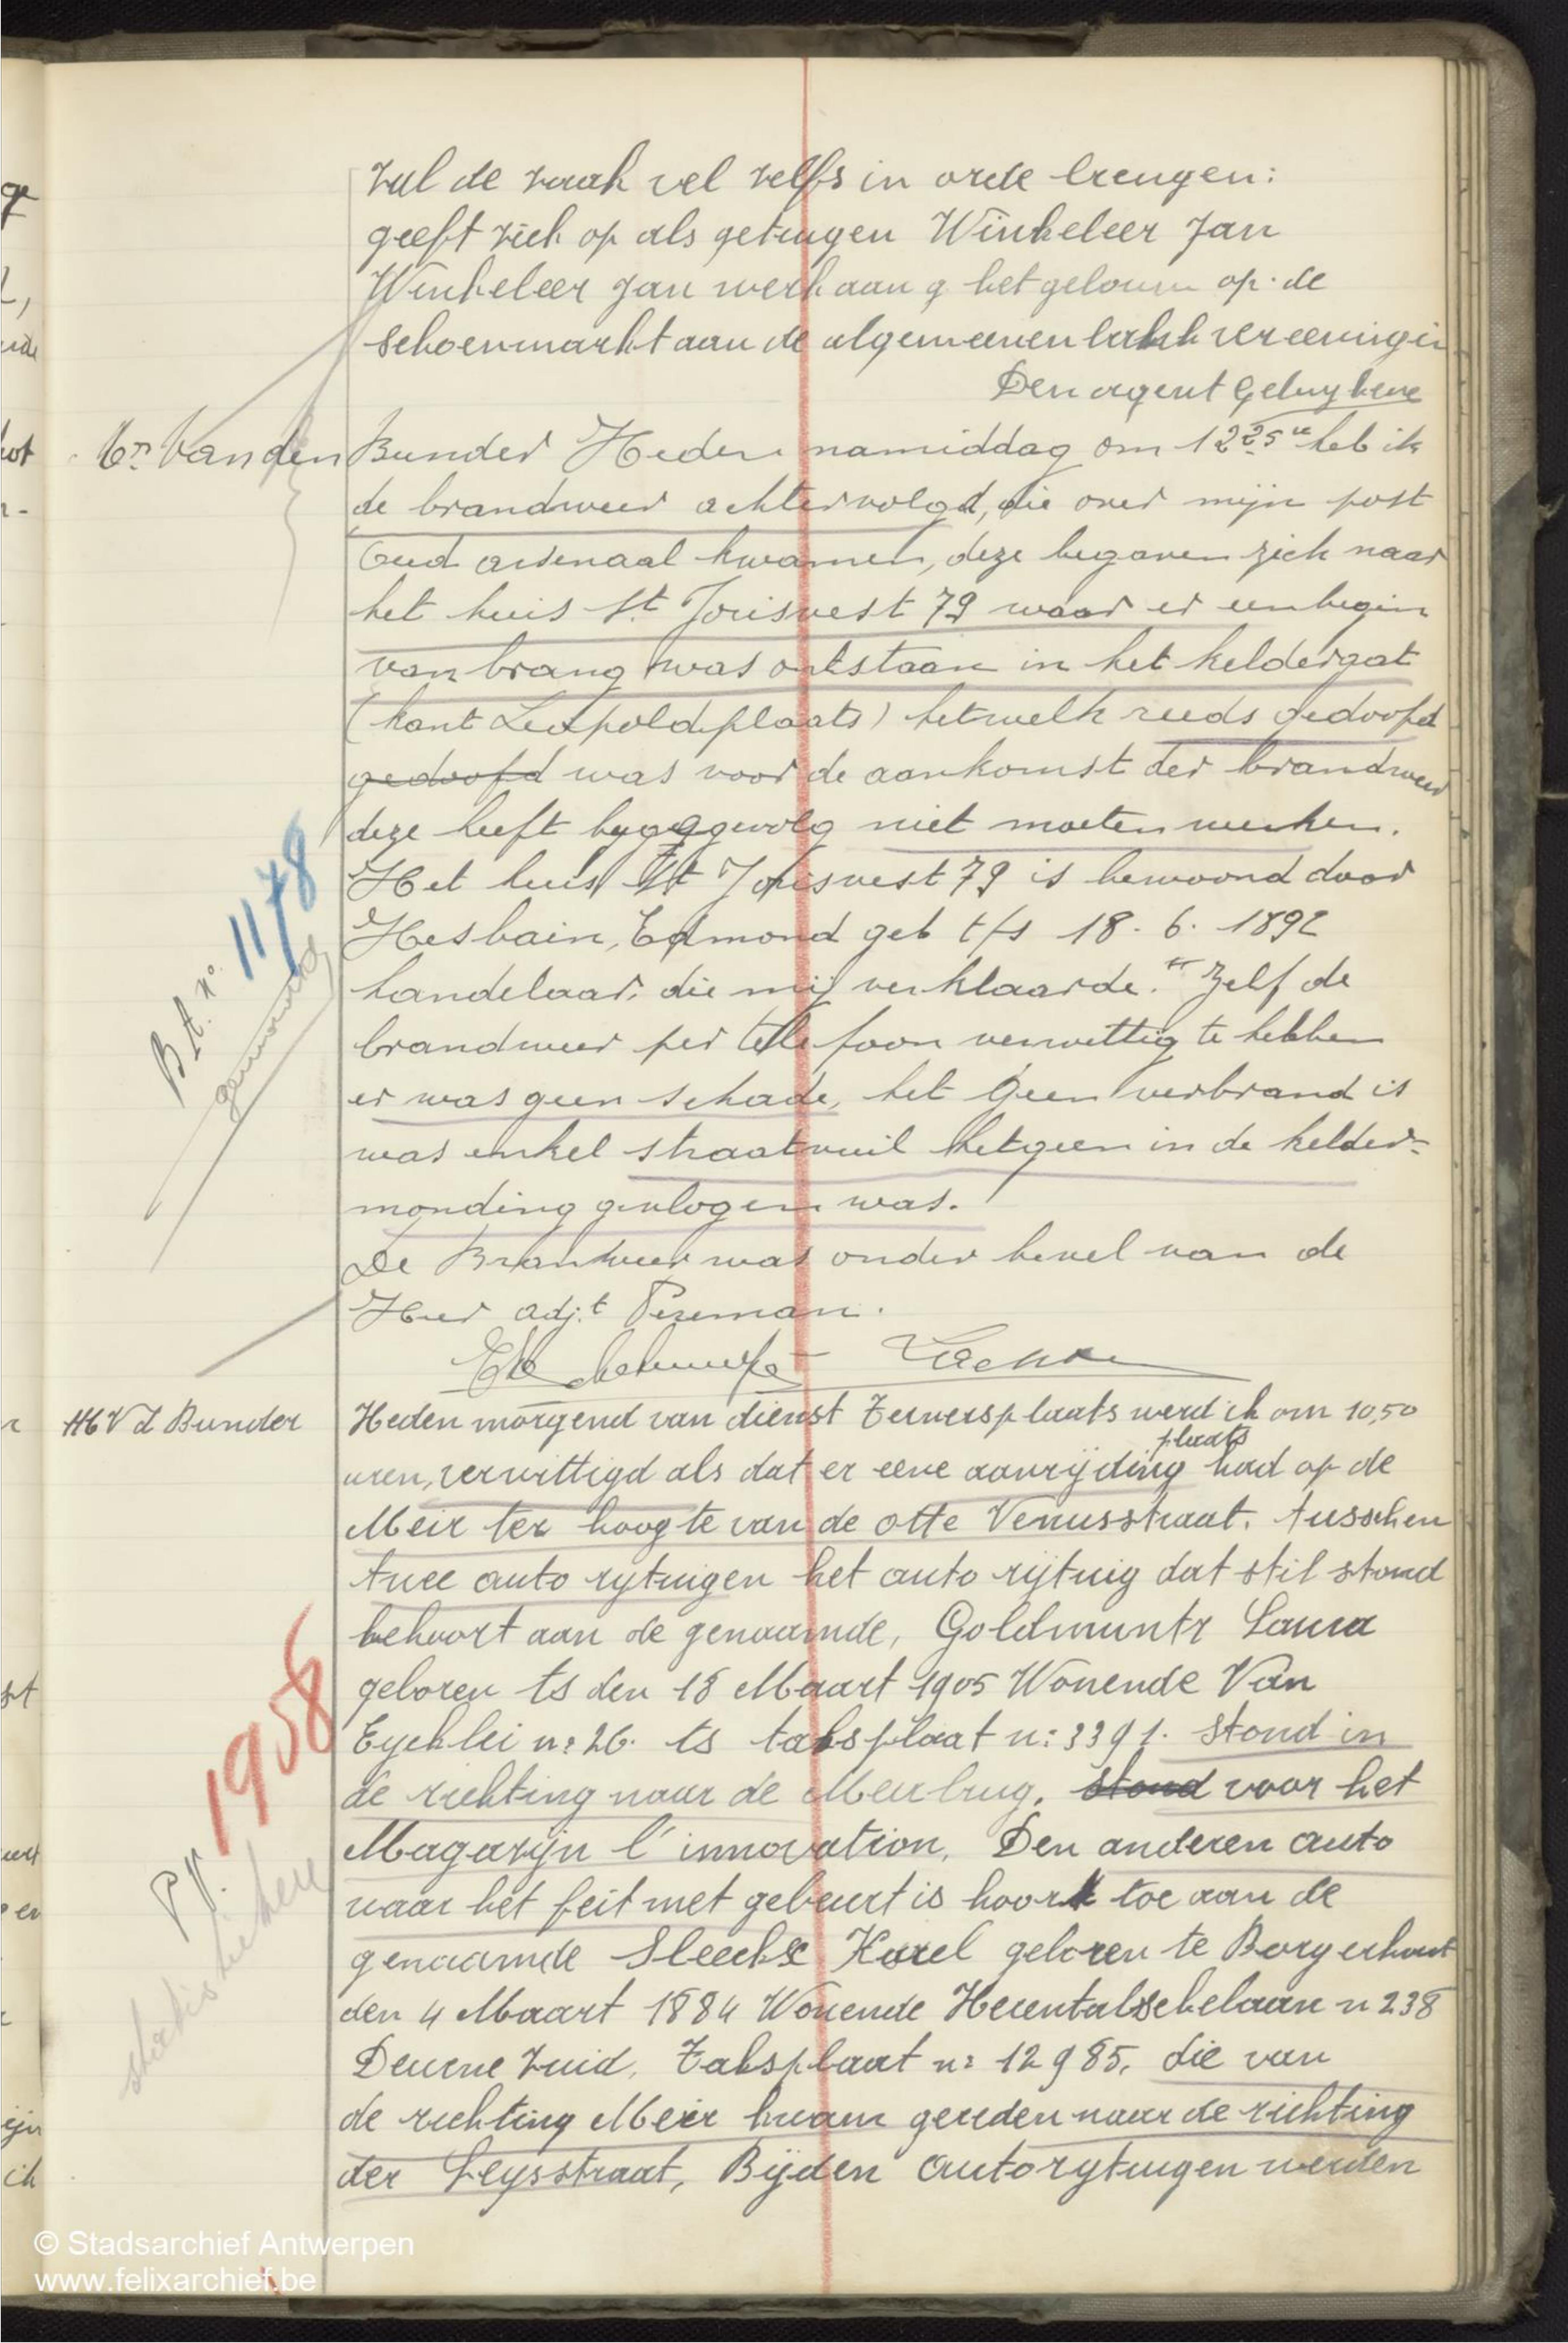 zul de zaak wel zelfs in orde brengen:
geeft zich op als getuigen Winkeleer Jan
Winkeleer Jan werk aan het op de
schoenmarkt aan de algemeenen vereeningin
Den agent
Van den Bunder Heden namiddag om 12 25 u heb ik
de brandweer achtervolgd, die over mijn post
Oud arsenaal kwamen, deze begaven zich naar
het huis St. Jorisvest 79 waar er een begin
van brang was ontstaan in het keldergat
(kant Leopoldplaats) hetwelk reeds gedoofd
gedoofd was voor de aankomst der brandweer
deze heeft bygevolg niet moeten werken.
Het huis St Jorisvest 79 is bewoond door
Hesbain, Edmond geb t/s 18. 6. 1892
handelaar, die mij verklaarde. " Zelf de
brandweer per tellefoon verwittig te hebben
er was geen schade, het geen verbrand is
was enkel straatvuil hetgeen in de kelder-
monding gevlogen was.
De Brandweer was onder bevel van de
Heer adj.t Pereman.
B.A. n° 1178
HB V d Bunder
Heden morgend van dienst Teniersplaats werd ik om 10,50
plaats
uren, verwittigd als dat er eene aanrijding had op de
Meir ter hoogte van de otte Venusstraat. tusschen
twee auto rytuigen het auto rijtuig dat stil stond
behoort aan de genaamde, Goldmuntz Laura
geboren ts den 18 Maart 1905 Wonende Van
Eycklei n: 26. ts taksplaat n: 3391. stond in
de richting naar de Meirbrug. stond voor het
Magazijn l'innovation. Den anderen auto
waar het feit met gebeurt is hoort toe aan de
genaamde Sleeckx Karel geboren te Borgerhout
den 4 Maart 1884 Wonende Herentalschelaan n 238
Deurne Zuid. Taksplaat n: 12985. die van
de richting Meir kwam gereden naar de richting
der Leysstraat, Bijden autorytuigen werden
P.V. 1958
© Stadsarchief Antwerpen
www.felixarchief.be